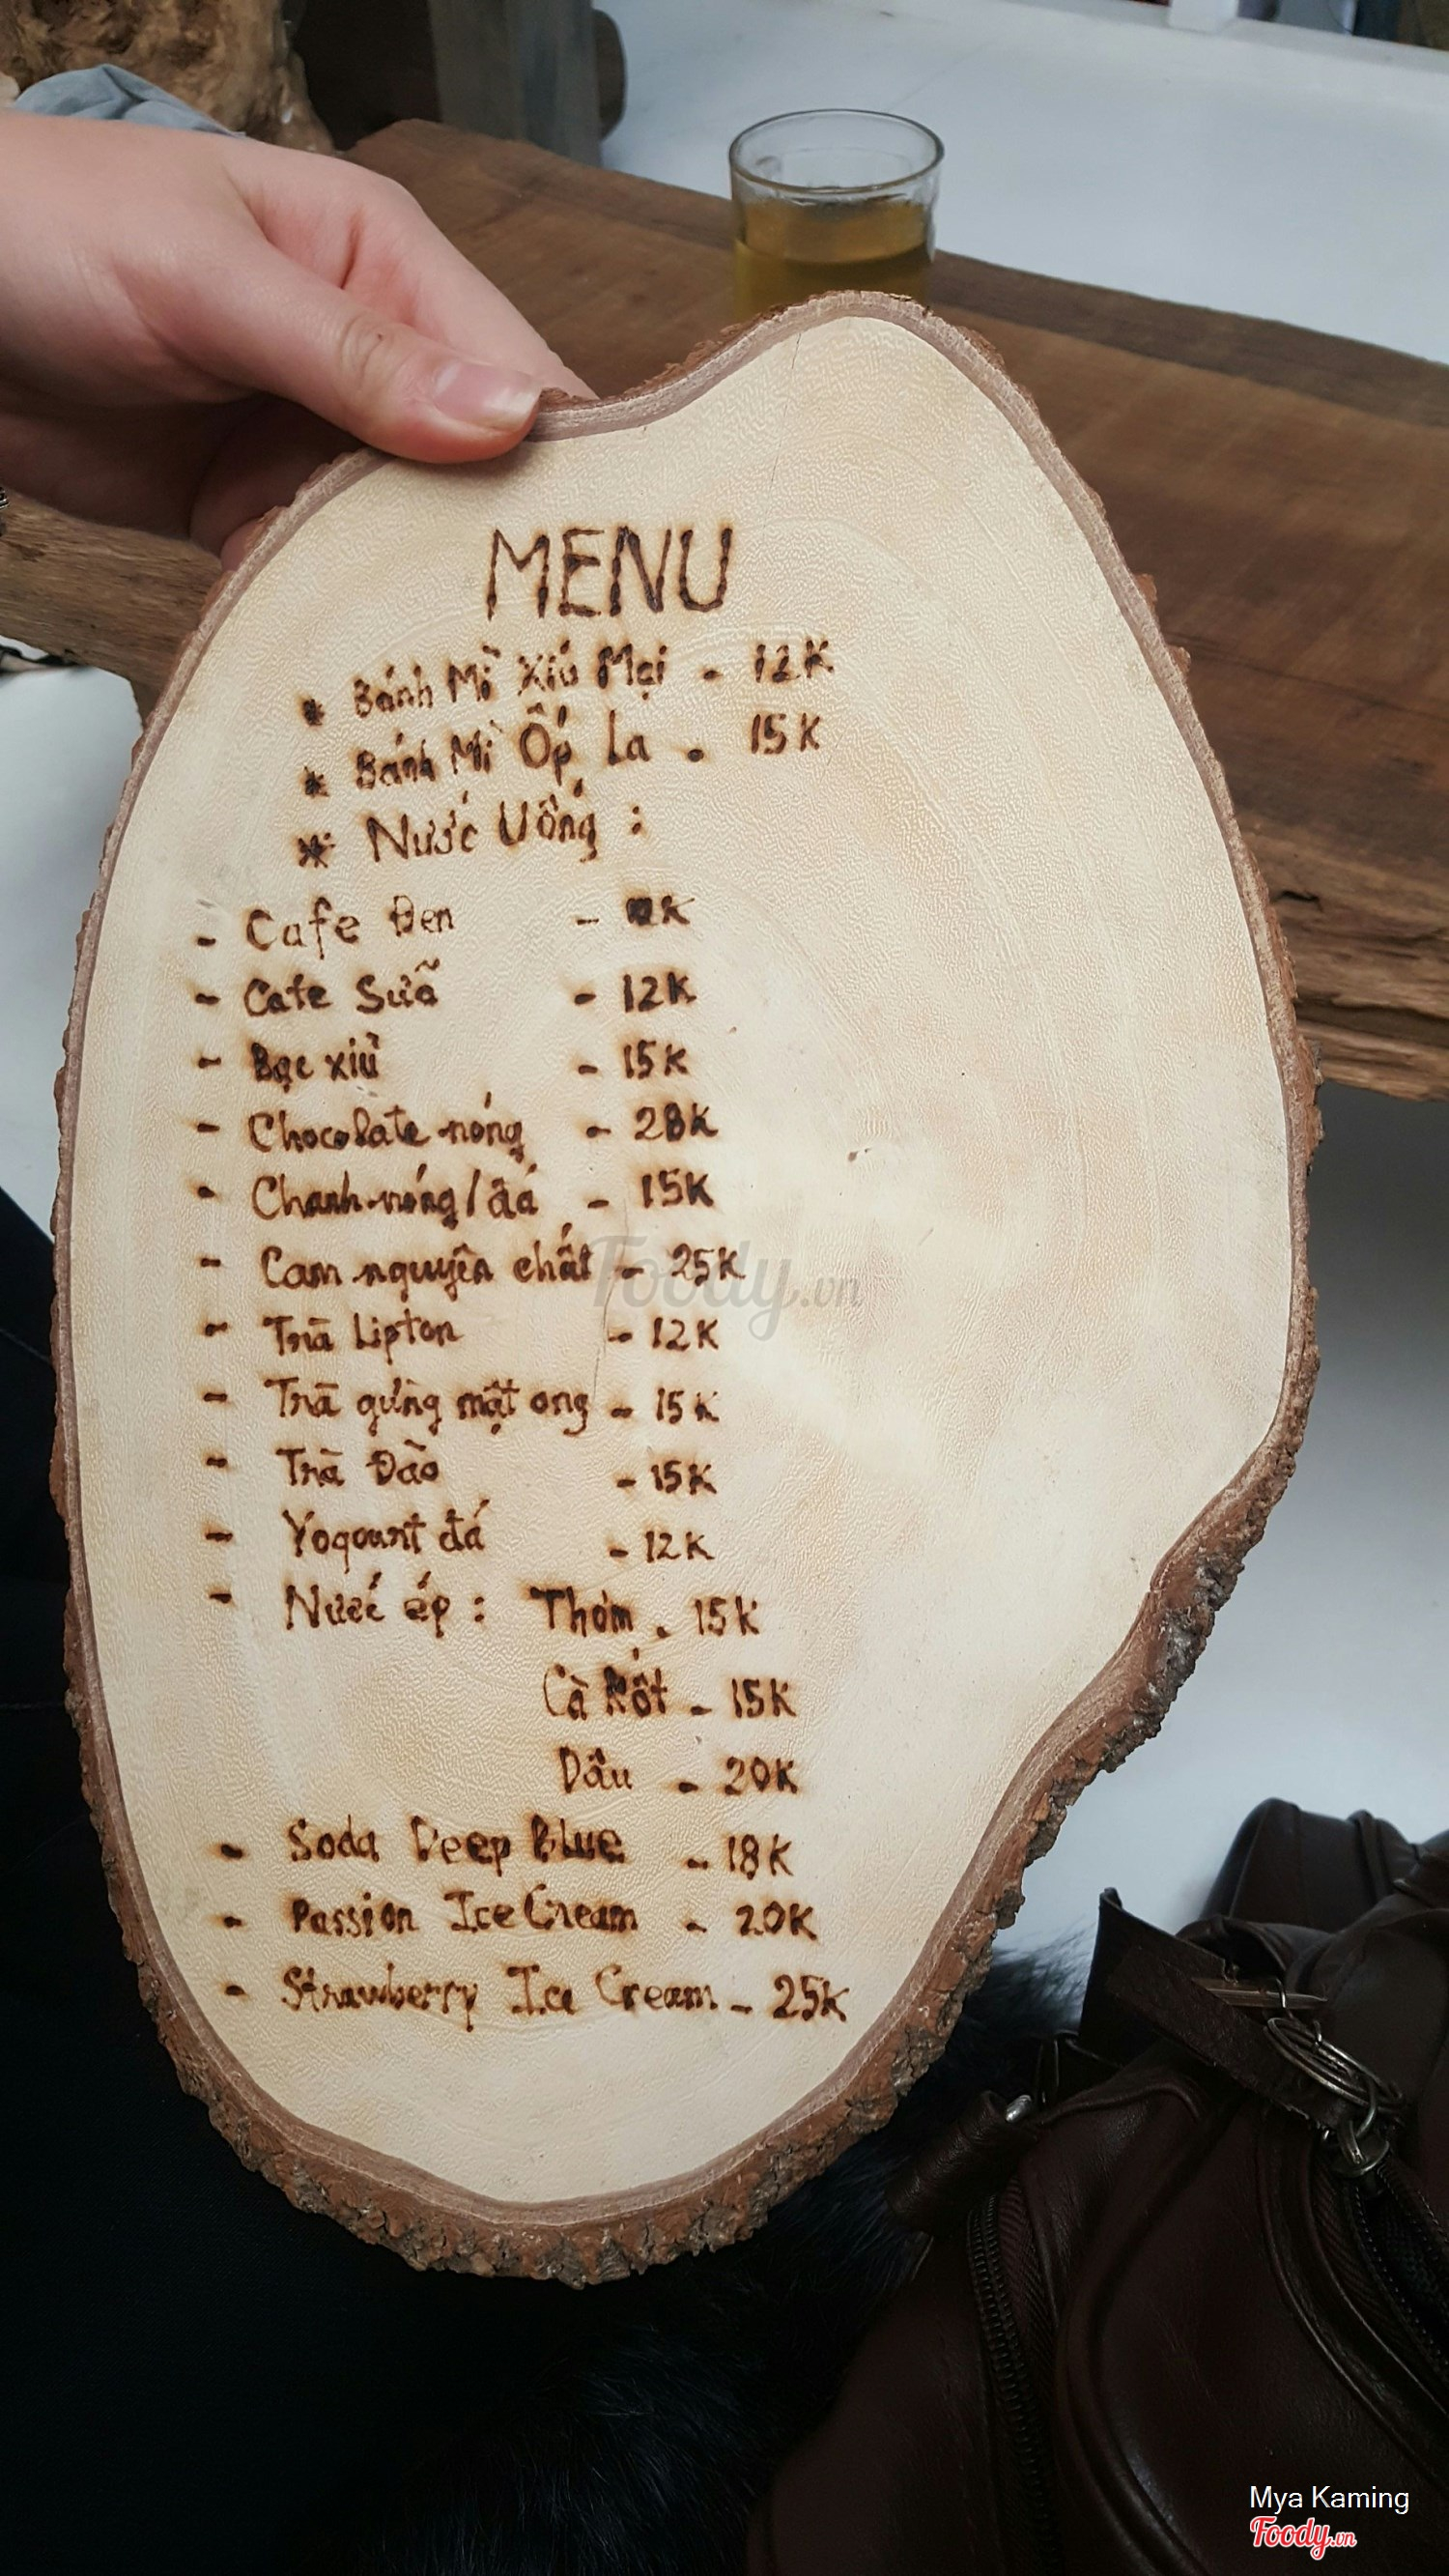 MENU
* Bánh Mì Xíu Mại - 12K
* Bánh Mì Ốp La - 15K
* Nước Uống :
- Cafe Đen - K
- Cafe Sữa - 12K
- Bạc xiù - 15K
- Chocolate nóng - 28K
- Chanh nóng / đá - 15K
- Cam nguyên chất - 25K
- Trà Lipton - 12K
- Trà gừng mật ong - 15K
- Trà Đào - 15K
- Yogourt đá - 12K
- Nước ép : Thơm - 15K
Cà Rốt - 15K
Dâu - 20K
- Soda Deep Blue - 18K
- Passion Ice Cream - 20K
- Strawberry Ice Cream - 25K
Foody.vn
Mya Kaming
Foody.vn